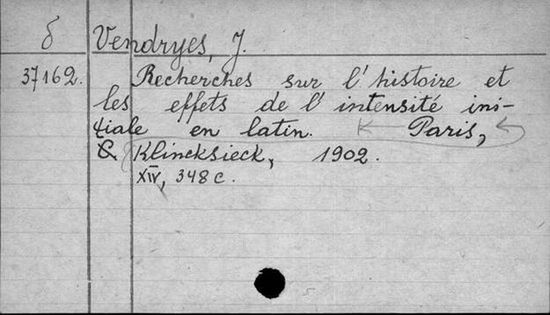 δ Vendryes, J.
37162. Recherches sur l'histoire et
les effets de l'intensité ini-
tiale en latin. Paris,
Klincksieck, 1902.
XIV, 348 c.